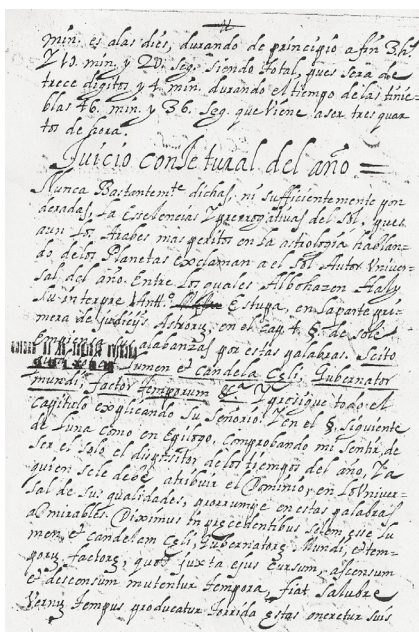 min. es alas dies, durando de principio a fin 3.hs.
Y 10. min. y 20. seg. siendo total, pues será de
trece digitos y 4. min. durando el tiempo de las tinie
blas 46. min. y 36. seg. que viene a ser tres quar
tos de hora.
Juicio conjetural del año =
Nunca Bastantemte. dichas, ni sufficientemente pon
deradas, la Escelencias Y prerrogativas del Sol, pues
aun los Arabes mas peritos en la astrologia hablan
do de los Planetas exclaman a el Sol Autor Univer
sal del año. Entre los quales Albohazen Haly
Su interpre Antt.o Estupa, en la parte pri
mera de judicijs Astroru, en el Cap 4. §. de sole
alabanzas por estas palabras. Scito
lumen et Candela Cęli, Gubernator
mundi, factor temporum &c.a Y prosigue todo el
Capitulo explicando Su Señorio. Y en el §. siguiente
de Luna como en Epilogo, comprobando mi sentir, de
ser el solo el dispositor de los tiempos del año, Y a
quien se le deve atribuir el Dominio, en lo Univer
sal de sus qualidades, prorrumpe en estas palabras
admirables. Diximus in precedentibus Solem, esse lu
men, et candelam Cęli, Gubernatorę Mundi, et tem
porų factorę, quod juxta ejus cursum, ascensum
et descensum mutentur tempora, fiat Salubre
Vernų tempus producatur torrida Ęstas oneretur suis